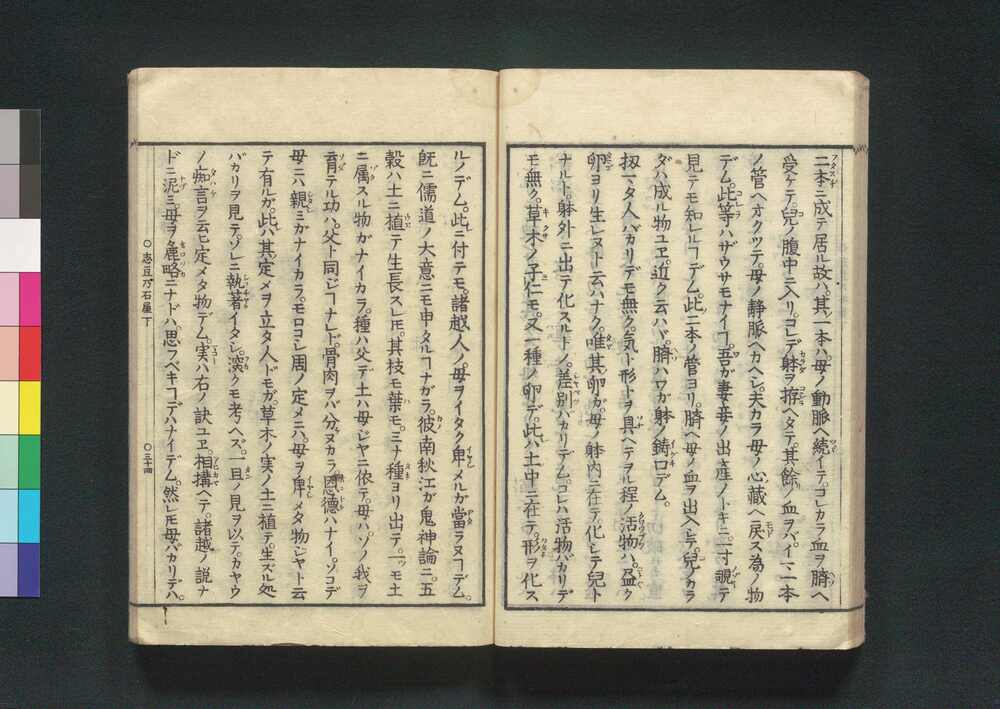 二本ニ成テ居ル故ハ。其ノ一本ハ。母ノ動脈ヘ続イテ。コレカラ血ヲ臍ヘ
受ケテ。兒ノ腹中ニ入リ。コレデ躰ヲ拵ヘタテ。其餘ノ血ヲバ。イマ一本
ノ管ヘオクツテ。母ノ静脈ヘカヘシ。夫カラ母ノ心藏ヘ戻ス為ノ物
デム。此等ハザウサモナイヿ。吾ガ妻妾ノ出産ノトキニ。一寸覗テ
見テモ知レルヿデム。此二本ノ管ヨリ。臍ヘ母ノ血ヲ出入シテ。兒ノカラ
ダハ成ル物ユヱ。近ク云ハバ。臍ハワガ躰ノ鋳口デム。
扨一タ人バカリデモ無ク。気ト形トヲ具ヘテヲル程ノ活物ハ。盡ク
卵ヨリ生レヌト云ハナク。唯其卵ガ。母ノ躰内ニ在テ。化シテ兒ト
ナルト。躰外ニ出テ化スルトノ。差別バカリデム。コレハ活物バカリデ
モ無ク。草木ノ子仁モ。又一種ノ卵デ。此ハ土中ニ在テ。形ヲ化ス
ルノデム。此ニ付テモ。諸越人ノ。母ヲイタク卑メルガ當ラヌヿデム。
既ニ儒道ノ大意ニモ申タルヿナガラ。彼南秋江ガ鬼神論ニ。五
穀ハ土ニ植テ生長スレ𪜈。其枝モ葉モ。ミナ種ヨリ出テ。一ツモ土
ニ属スル物ガナイカラ。種ハ父デ土ハ母ジヤニ依テ。母ハ。ソノ我ヲ
育テル功ハ。父ト同ジヿナレド。骨肉ヲバ分ケヌカラ。恩德ハナイ。ソコデ
母ニハ親ミガナイカラ。モロコシ周ノ定メニハ。母ヲ卑メタ物ジヤト云
テ有ルガ。此ハ其定メヲ立タ人ドモガ。草木ノ実ノ土ニ植テ。生ズル処
バカリヲ見テ。ソレニ執著イタシ。深クモ考ヘズ。一旦ノ見ヲ以テ。カヤウ
ノ痴言ヲ云ヒ定メタ物デム。実ハ右ノ訣ユヱ。相構ヘテ。諸越ノ説ナ
ドニ泥ミ。母ヲ麁略ニナドハ。思フベキヿデハナイデム。然レ𪜈母バカリデハ。
○志豆乃石屋丁
○三十四